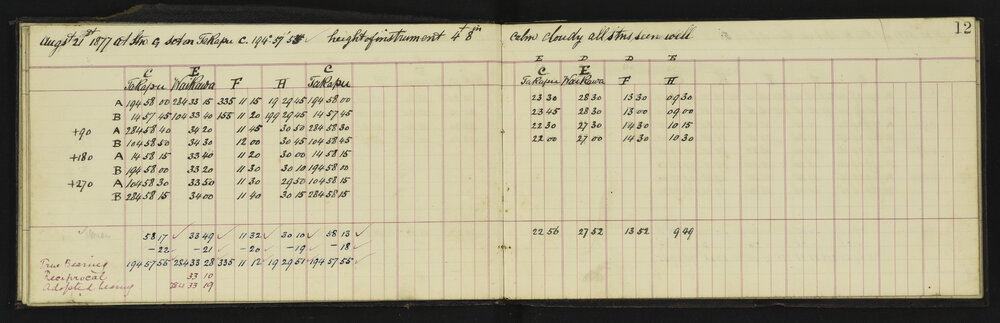 Augst 21st 1877 at Stn G set on TaKapu C. 194° 57' 55" height of instrument 4ft 8in Calm cloudy all stns seen well 12
E D D E
C E F H C C E F H
TaKapu WaiKawa TaKapu TaKapu WaiKawa
A 194 58 00 284 33 15 335 11 15 19 29 45 194 58 00 23 30 28 30 13 30 09 30
B 14 57 45 104 33 40 155 11 20 199 29 45 14 57 45 23 45 28 30 13 00 09 00
+90 A 284 58 40 34 20 11 45 30 50 284 58 30 22 30 27 30 14 30 10 15
B 104 58 50 34 30 12 00 30 45 104 58 45 22 00 27 00 14 30 10 30
+180 A 14 58 15 33 40 11 20 30 00 14 58 15
B 194 58 00 33 20 11 30 30 10 194 58 00
+270 A 104 58 30 33 50 11 30 29 50 104 58 15
B 284 58 15 34 00 11 40 30 15 284 58 15
58 17 33 49 11 32 30 10 58 13 22 56 27 52 13 52 9 49
-22 -21 -20 -19 -18
True Bearing 194 57 55 284 33 28 335 11 12 19 29 51 194 57 55
Reciprocal 33 10
Adopted bearing 284 33 19